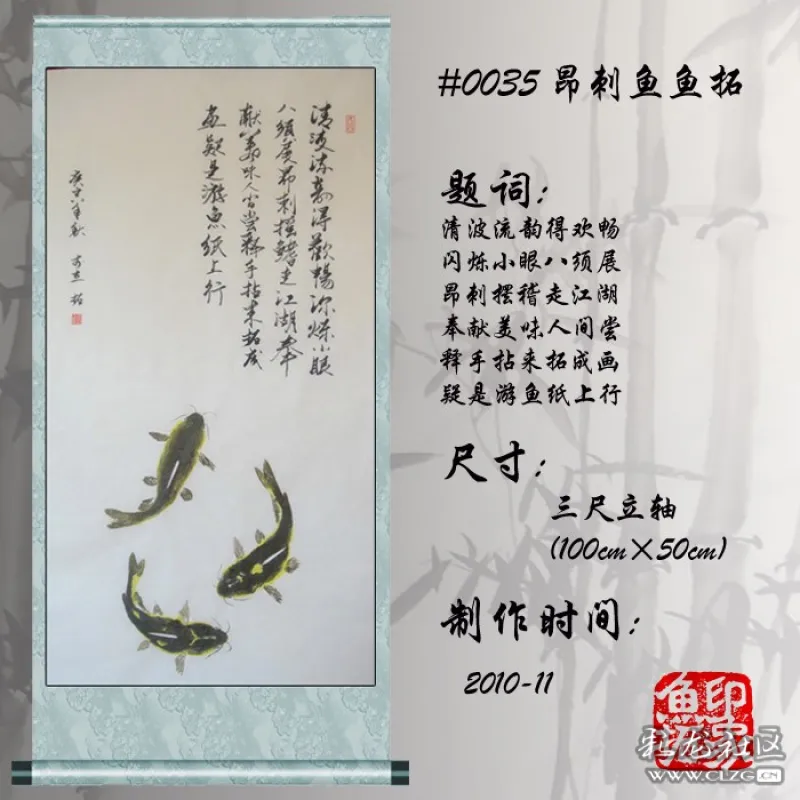 #0035 昂刺鱼鱼拓
题词：
清波流韵得欢畅
闪烁小眼八须展
昂刺摆稽走江湖
奉献美味人间尝
释手拈来拓成画
疑是游鱼纸上行
尺寸：
三尺立轴
(100cm×50cm)
制作时间：
2010-11
清波流韵得歡暢闪烁小眼
八须展昂刺摆鳍走江湖奉
献美味人间尝释手拈来拓成
画疑是游鱼纸上行
利龙社区
WWW.CLZG.CN